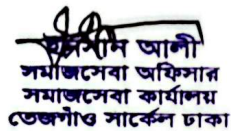 আলী
সমাজসেবা অফিসার
সমাজসেবা কার্যালয়
তেজগাঁও সার্কেল ঢাকা